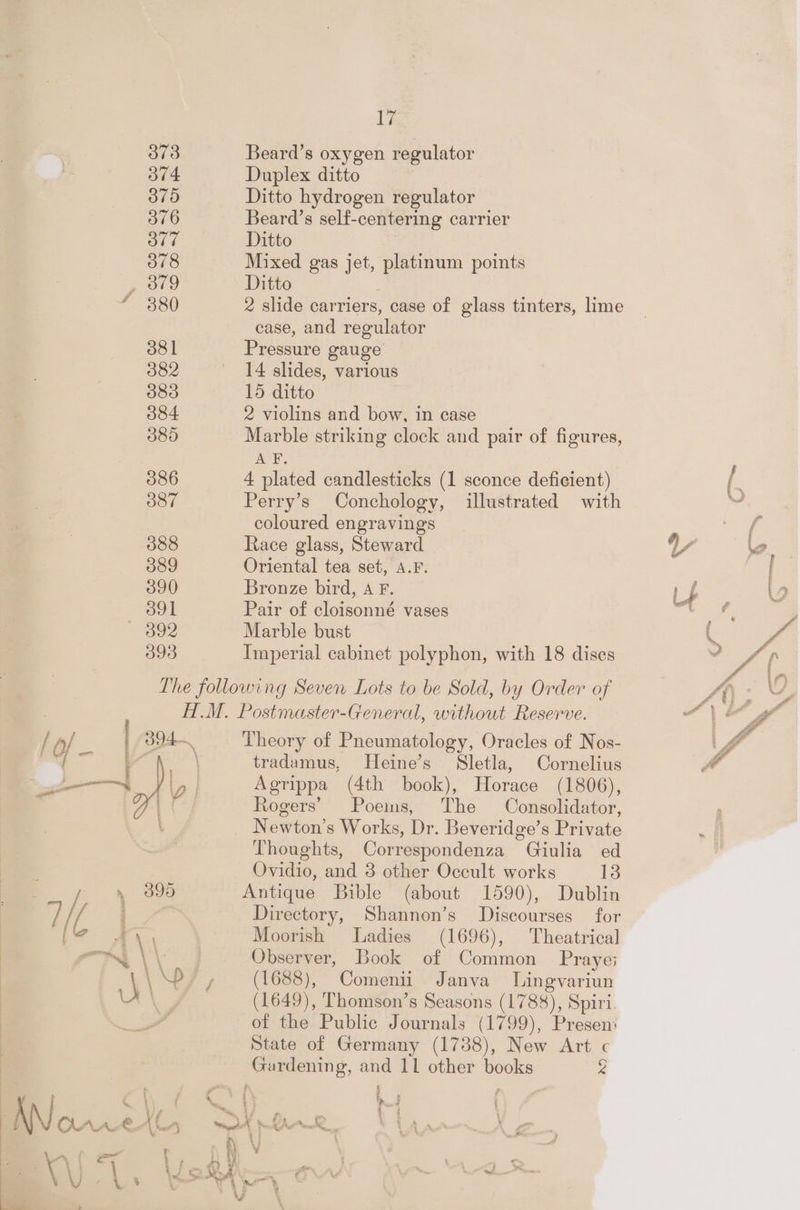 17
373 Beard's oxygen regulator
374 Duplex ditto
375 Ditto hydrogen regulator
376 Beard's self-centering carrier
377 Ditto
378 Mixed gas jet, platinum points
379 Ditto
380 2 slide carriers, case of glass tinters, lime
case, and regulator
381 Pressure gauge
382 14 slides, various
383 15 ditto
384 2 violins and bow, in case
385 Marble striking clock and pair of figures,
A F.
386 4 plated candlesticks (1 sconce deficient)
387 Perry's Conchology, illustrated with
coloured engravings
388 Race glass, Steward
389 Oriental tea set, A.F.
390 Bronze bird, A F.
391 Pair of cloisonné vases
392 Marble bust
393 Imperial cabinet polyphon, with 18 discs
The following Seven Lots to be Sold, by Order of
H.M. Postmaster-General, without Reserve.
394 Theory of Pneumatology, Oracles of Nos-
tradamus, Heine's Sletla, Cornelius
Agrippa (4th book), Horace (1806),
Rogers' Poems, The Consolidator,
Newton's Works, Dr. Beveridge's Private
Thoughts, Correspondenza Giulia ed
Ovidio, and 3 other Occult works 13
395 Antique Bible (about 1590), Dublin
Directory, Shannon's Discourses for
Moorish Ladies (1696), Theatrical
Observer, Book of Common Praye
(1688), Comenii Janva Lingvariun
(1649), Thomson's Seasons (1788), Spiri
of the Public Journals (1799), Presen
State of Germany (1738), New Art
Gardening, and 11 other books